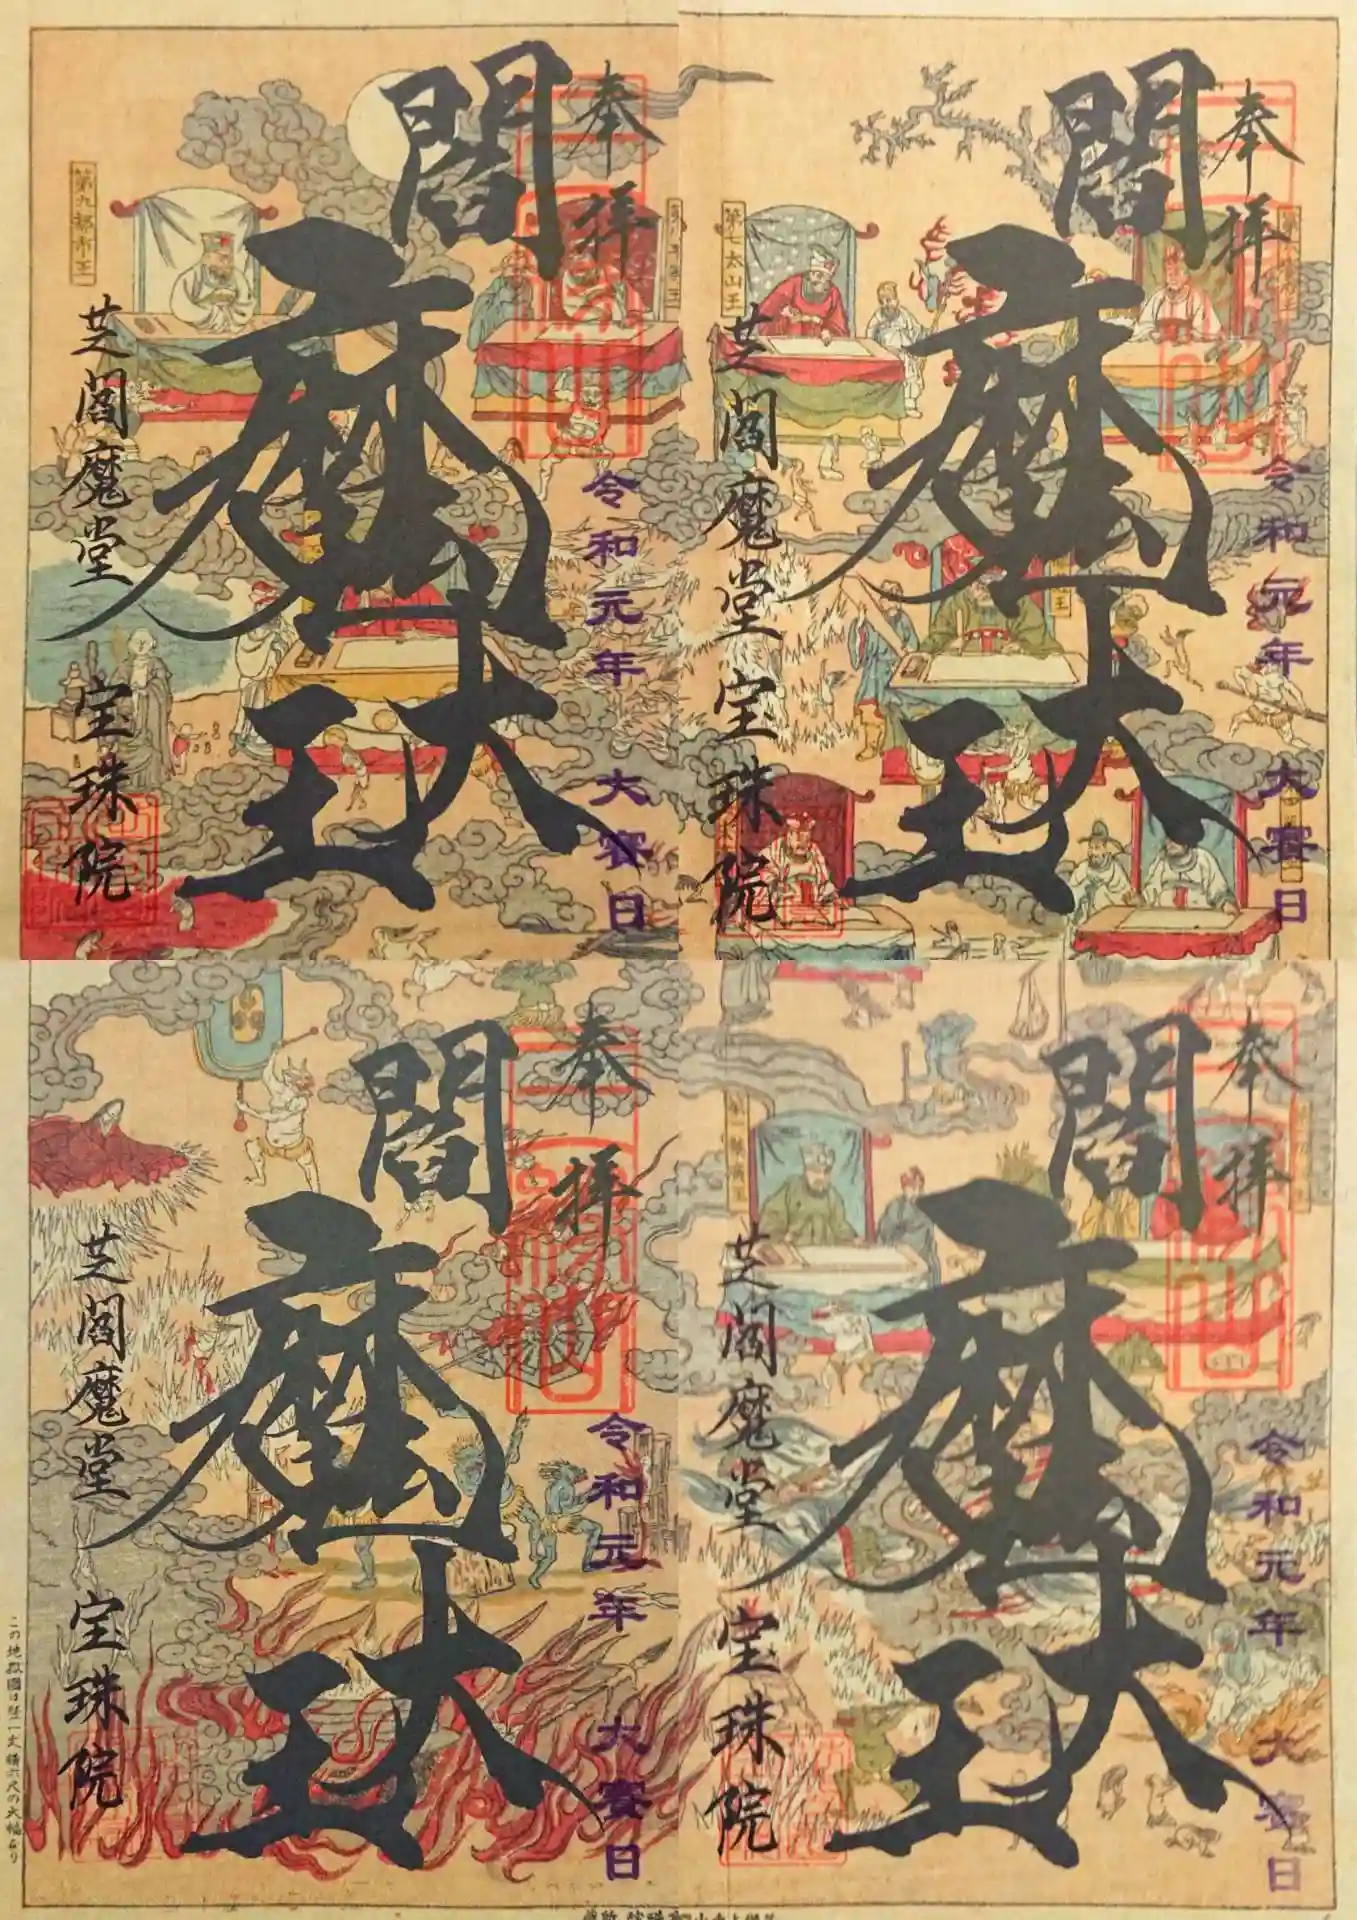 奉拝
閻魔大王
令和元年 大賽日
芝閻魔堂 宝珠院
第九都市王
奉拝
閻魔大王
令和元年 大賽日
芝閻魔堂 宝珠院
第七太山王
奉拝
閻魔大王
令和元年 大賽日
芝閻魔堂 宝珠院
この地獄図は竪一丈横六尺の大幅なり
奉拝
閻魔大王
令和元年 大賽日
芝閻魔堂 宝珠院